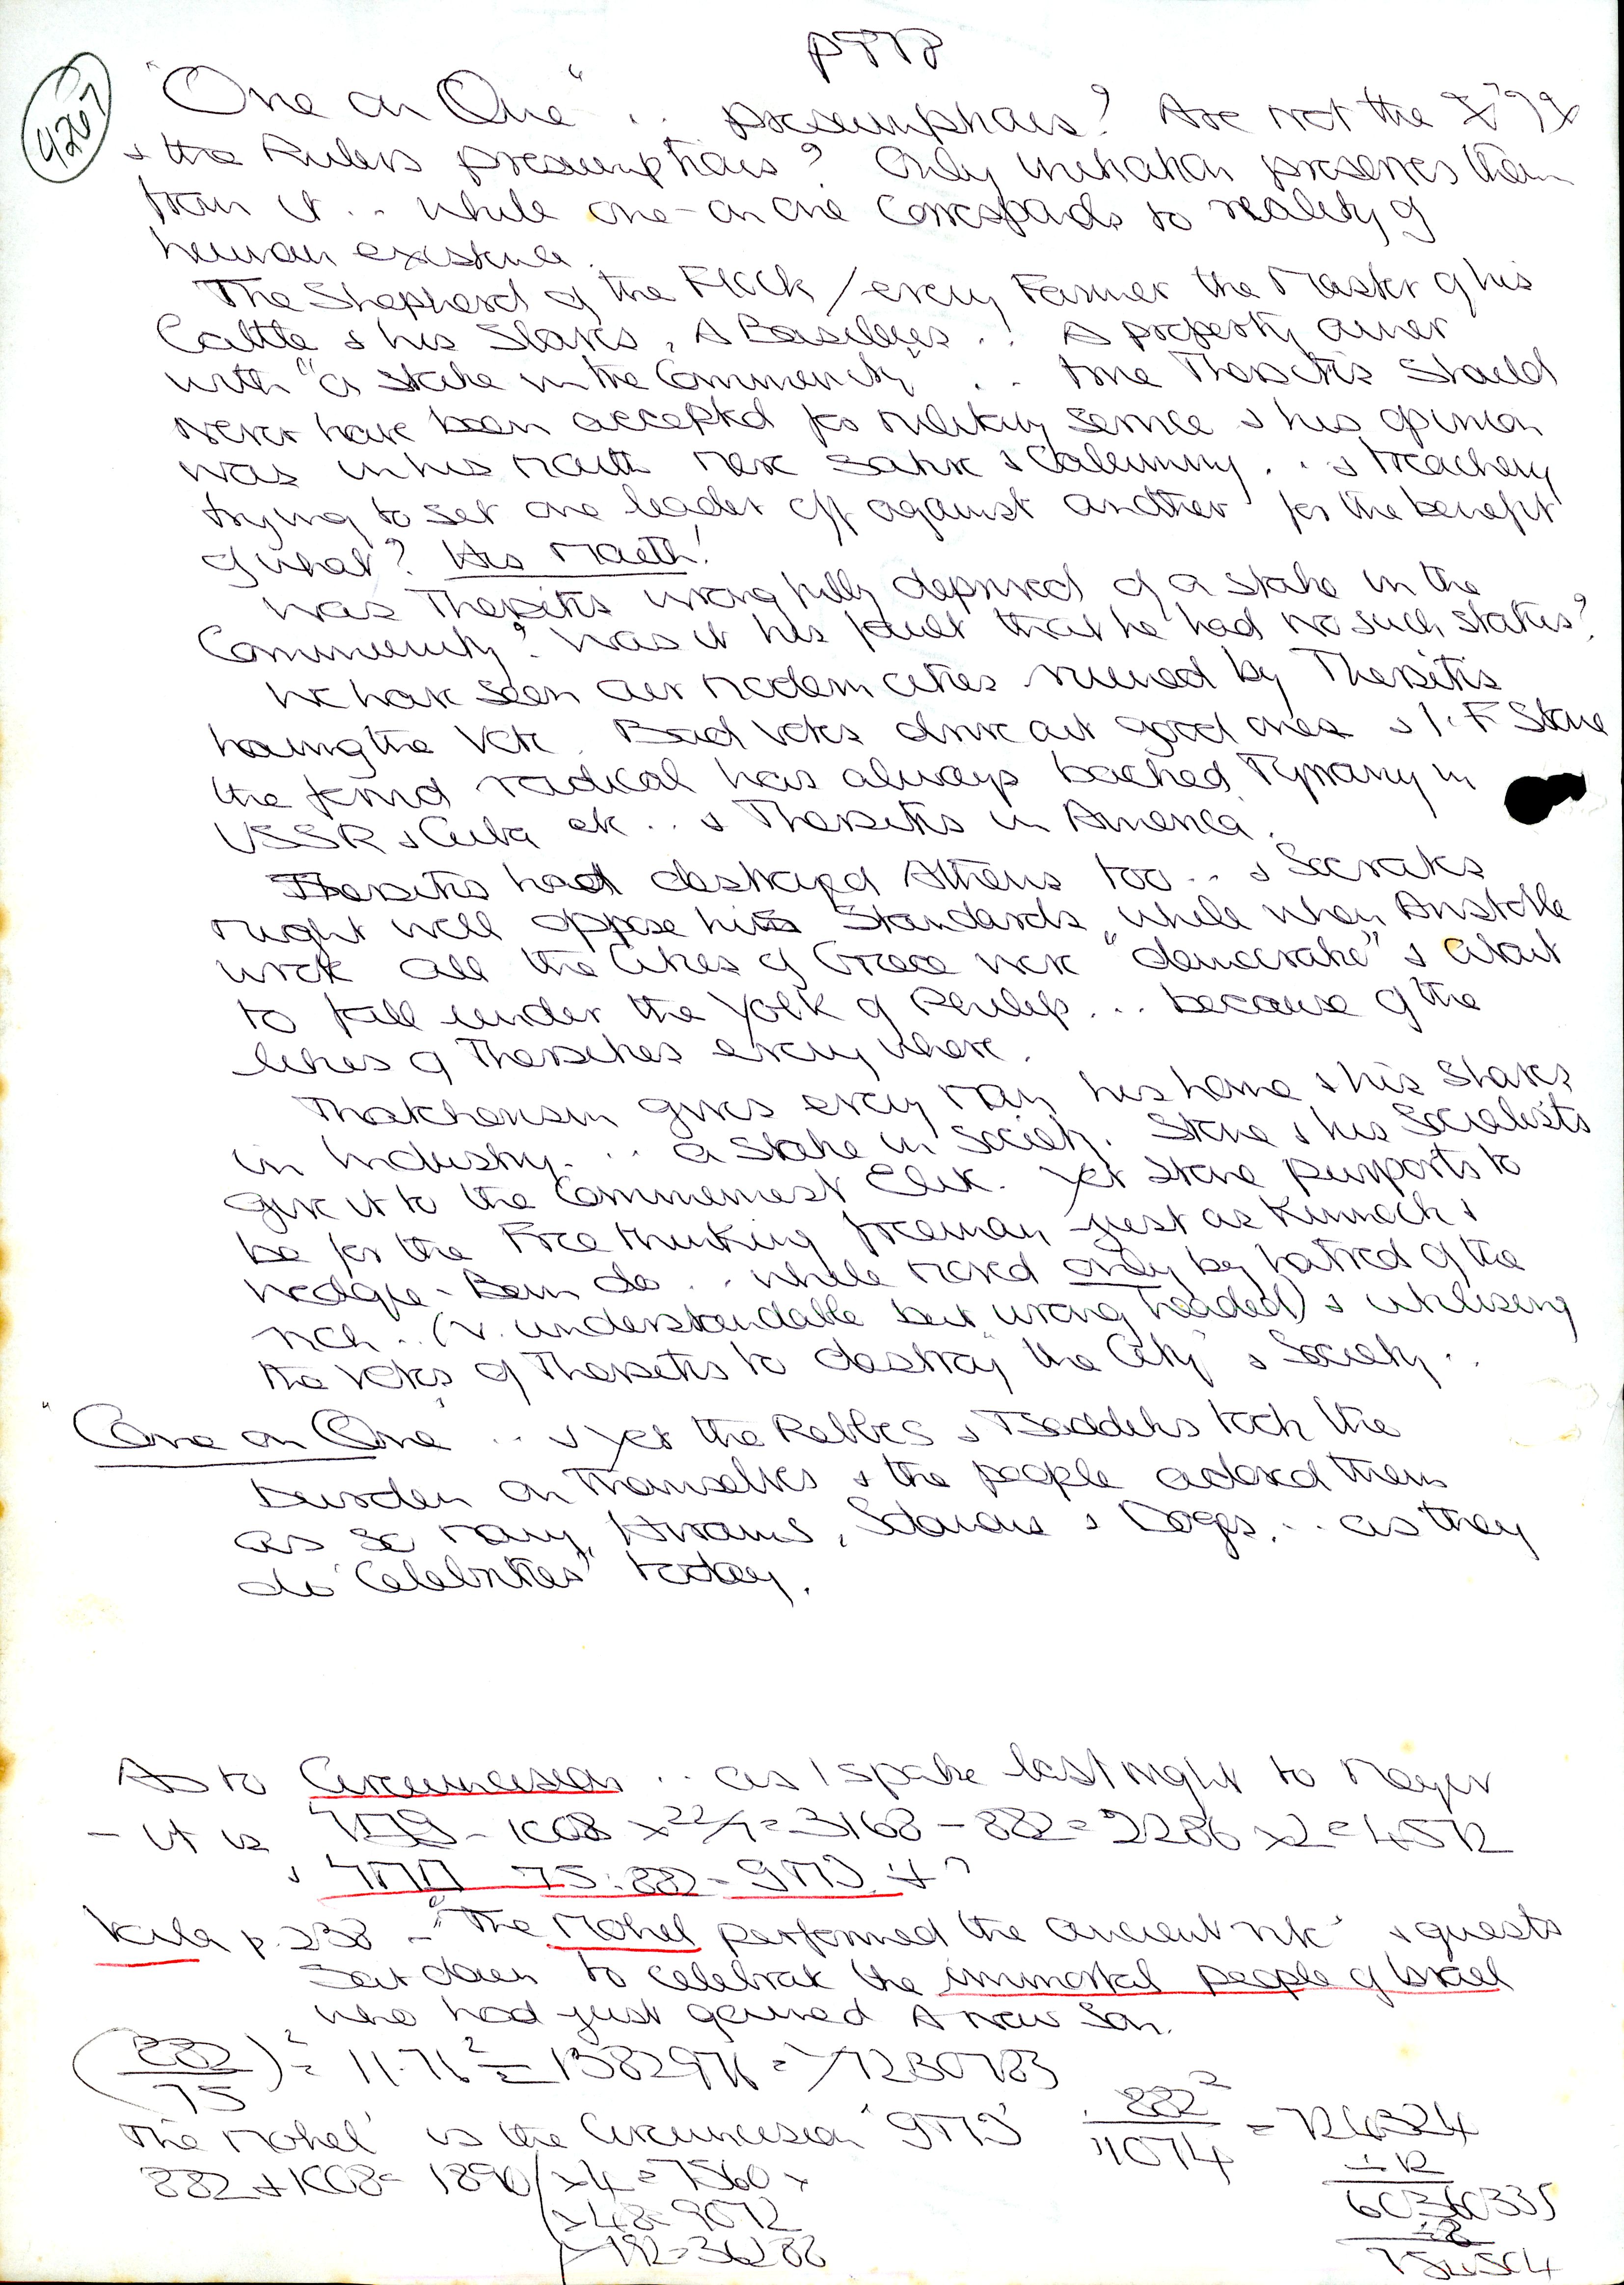 4267
"One on One" .. presumptuous? Are not the
& the Rulers presumptuous? Only initiation preserves them
from it .. while one-on one corresponds to reality of
human existence.
The Shepherd of the Flock / every Farmer the Master of his
Cattle & his Slaves, A Basileus .. A property owner
with "a stake in the Community" .. true Thersitis Should
never have been accepted for military service & his opinion
was in his mouth mere satire & Calumny .. & treachery
trying to set one leader off against another for the benefit
of what? His Mouth!
Was Thersitis wrongfully deprived of a stake in the
Community? Was it his fault that he had no such status?
We have seen our modern cities ruined by Thersitis
having the Vote. Bad Votes drive out good ones & I. F Stone
the fond radical has always backed Tyranny in
USSR & Cuba etc .. & Thersitis in America.
Thersitis had destroyed Athens too .. & Socrates
might well oppose his Standards, while when Aristotle
wrote all the Cities of Greece were "democratic" & about
to fall under the Yolk of Philip ... because of the
likes of Thersites every where.
Thatcherism gives every man his home & his Shares
in Industry ... a Stake in Society. Stone & his Socialists
give it to the Communist Elite. Yet Stone purports to
be for the Free thinking freeman just as Kinnock &
Wedgie-Benn do .. while moved only by hatred of the
rich .. (v. understandable but wrong headed) & utilising
the Votes of Thersitis to destroy "the City" & Society ..
"One on One" .. & yet the Rebbes & Tsaddiks took the
burden on themselves & the people adored them
as so many Hirams, Solomons & Doges .. as they
do "Celebrities" today.
As to Circumcision .. as I spoke last night to Meyer
- it is 1008 x 22/7 = 3168 - 882 = 2286 x 2 = 4572
& 75 : 882 =
p. 238 - "The Mohel performed the ancient rite" & guests
Sat down to celebrate the immortal people of Israel
who had just gained A new Son.
(882/75)² = 11.76² = 1382976 =
'The Mohel' is the Circumcision
882²
882 + 1008 = 1890 / x 4 = 7560
x 48 = 9072
x 192 = 36288